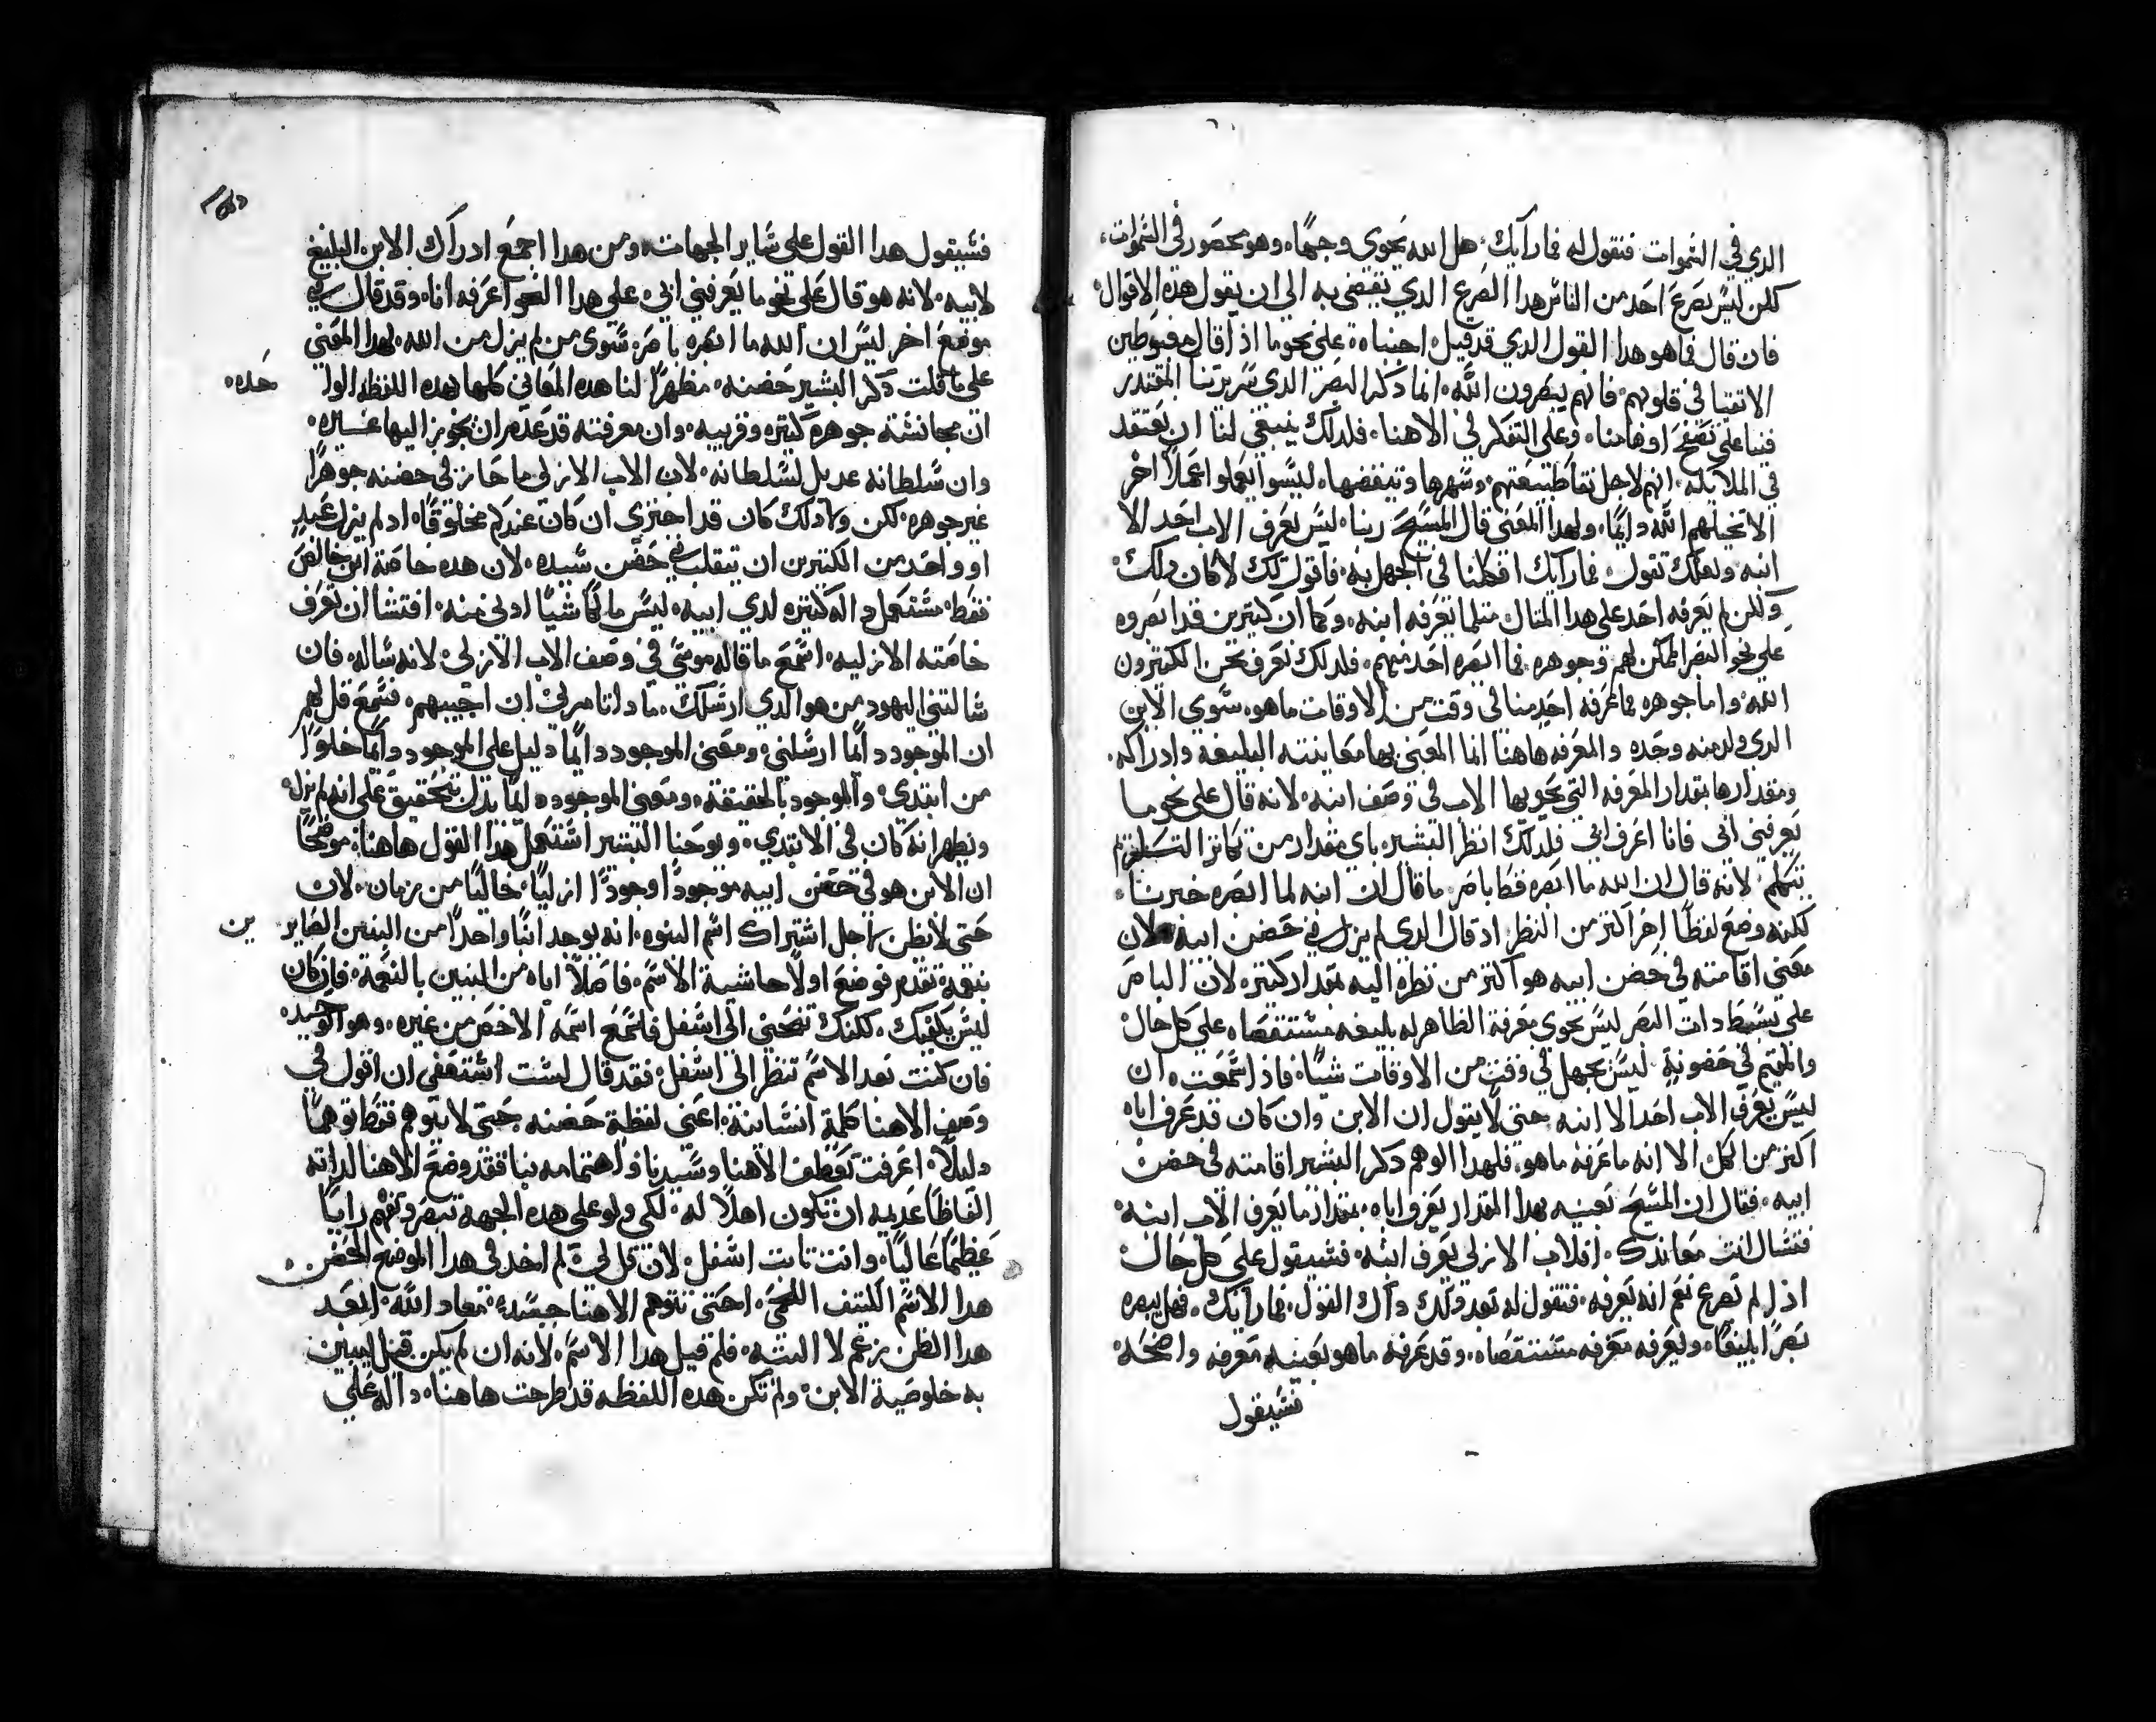 الدي في السموات فنقول له فما رايك هل الله يحوي وجها وهو محصور في السموات
لكن ليس يصرع احد من الناس هدا الصرع الدي يفضي به الي ان يقول هده الاقوال
فان قال فما هو هدا القول الدي قد قيل اجبناه علي نحو ما اذا قال مغبوطين
الاتقيا في قلوبهم فانهم يبصرون الله انما دكر البصر الدي سريرتنا المقتدر
فينا علي اوهامنا وعلي التفكر في الاهنا فلدلك ينبغي لنا ان نعتقد
في الملايكه انهم لاجل نقا طبيعتهم وسهرها ليسوا يعملوا عملا اخر
الا تخيلهم الله دايما ولهدا المعني قال المسيح ربنا ليس يعرف الاب احد الا
ابنه ولعلك تقول فما رايك افكلنا في الجهل به فاقول لك لا كان دلك
ولكن لم يعرفه احد علي هدا المثال مثلما يعرفه ابنه وكما ان كثيرين قد ابصروه
علي نحو البصر الممكن لهم وجوهره فما ابصره احد منهم فلدلك نعرف نحن الكثيرون
الله واما جوهره فما عرفه احد منا في وقت من الاوقات ما هو سوي الابن
الدي ولد منه وحده والمعرفه هاهنا انما المعني بها معاينته البليغه وادراكه
ومقدارها بمقدار المعرفه التي يحويها الاب في وصف ابنه لانه قال علي نحو ما
يعرفني ابي فانا اعرف ابي فلدلك انظر البشير باي مقدار من تكاثر
يتكلم لانه قال ان الله ما ابصره قط باصر ما قال ان ابنه لما ابصره خبرنا
لكنه وضع لفظا اخر اكثر من النظر اد قال الدي لم يزل في حضن ابيه لان
معني اقامته في حضن ابيه هو اكثر من نظره اليه بمقدار كثير لان الباصر
علي بسيط دات البصر ليس يحوي معرفة الظاهر له بليغه مستقصاه علي كل حال
والمقيم في حضونه ليس يجهل في وقت من الاوقات شيا فاذا سمعت ان
ليس يعرف الاب احدا الا ابنه حتي لا يقول ان الابن وان كان قد عرف اباه
اكثر من الكل الا انه ما عرفه ما هو فلهدا الوهم دكر البشير اقامته في حضن
ابيه فقال ان المسيح بعينه بهدا المقدار يعرف اباه بمقدار ما يعرف الاب ابنه
فتسال انت معاندك افلاب الازلي يعرف ابنه فسيقول علي كل حال
اذا لم يصرع نعم انه يعرفه فنقول له بعد دلك القول فما رايك فهل يبصره
بصرا بليغا ويعرفه معرفه مستقصاه وقد عرفه ما هو بعينه معرفه واضحه
فسيقول
فسيقول هدا القول علي ساير الجهات ومن هدا اجمع ادراك الابن البليغ
لابيه لانه هو قال علي نحو ما يعرفني ابي علي هدا النحو اعرفه انا وقد قال في
موضع اخر ليس ان الله ما ابصره باصر سوي من لم يزل من الله لهدا المعني
علي ما قلت دكر البشير حضنه مظهرا لنا هده المعاني كلها بهده اللفظه الوا
حده
ان مجانسة جوهره كثيره وقريبه وان معرفته قد عدم ان يجوز اليها غيره
وان سلطانه عديل لسلطانه لان الاب الازلي ما حاز في حضنه جوهرا
غير جوهره لكن ولا دلك كان قد اجتري ان كان عند كم مخلوقا اد لم يزل عبد
او واحد من الكثيرين ان يتقلب في حضن سيده لان هده خاصة ابن خالص
فقط مستعمل داله كثيره لدي ابيه ليس مالكا شيا ادني منه افتشا ان تعرف
خاصته الازليه اسمع ما قاله موسي في وصف الاب الازلي لانه ساله فان
سالتني اليهود من هو الدي ارسلك ما دا تامرني ان اجيبهم فسمع قل لهم
ان الموجود دايما ارسلني ومعني الموجود دايما دليل علي الموجود دايما خلوا
من ابتدي والموجود بالحقيقه ومعني الموجود دايما يدل بتحقيق علي انه لم يزل
ويظهر انه كان في الابتدي ويوحنا البشير استعمل هدا القول هاهنا موضحا
ان الابن هو في حضن ابيه موجودا وجودا ازليا خاليا من زمان لان
حتي لا يظن من اجل اشتراك اسم البنوه انه يوجد ابنا واحدا من البنين الصاير
ين
بنعمه تقدم فوضع اولا حاشية الاسم فاصلا اياه من البنين بالنعمة فان كان
ليس يكفيك لكنك تنحني الي اسفل فاسمع اسمه الاخص من غيره وهو الوحيد
فان كنت بعد الاسم تنظر الي اسفل فقد قال لست استعفي ان اقول في
وصف الاهنا كلمة انسانية اعني لفظة حضنه حتي لا يتوهم فقط توهما
دليلا اعرفت تعطف الاهنا وسيدنا واهتمامه بنا فقد وضع الاهنا لداته
الفاظا عديمه ان تكون اهلا له لكي ولو علي هده الجهه تبصر وتفهم رايا
عظيما عاليا وانت ثابت اسفل لان قل لي لم اخد في هدا الموضع الحضن
هدا الاسم الكثيف اللحمي احتي نتوهم الاهنا جسدا معاد الله ابعد
هدا الظن زعم لا البته فلم قيل هدا الاسم لانه ان لم يكن قيل ليبين
به خلوصية الابن ولم تكن هده اللفظه قد طرحت هاهنا داله علي